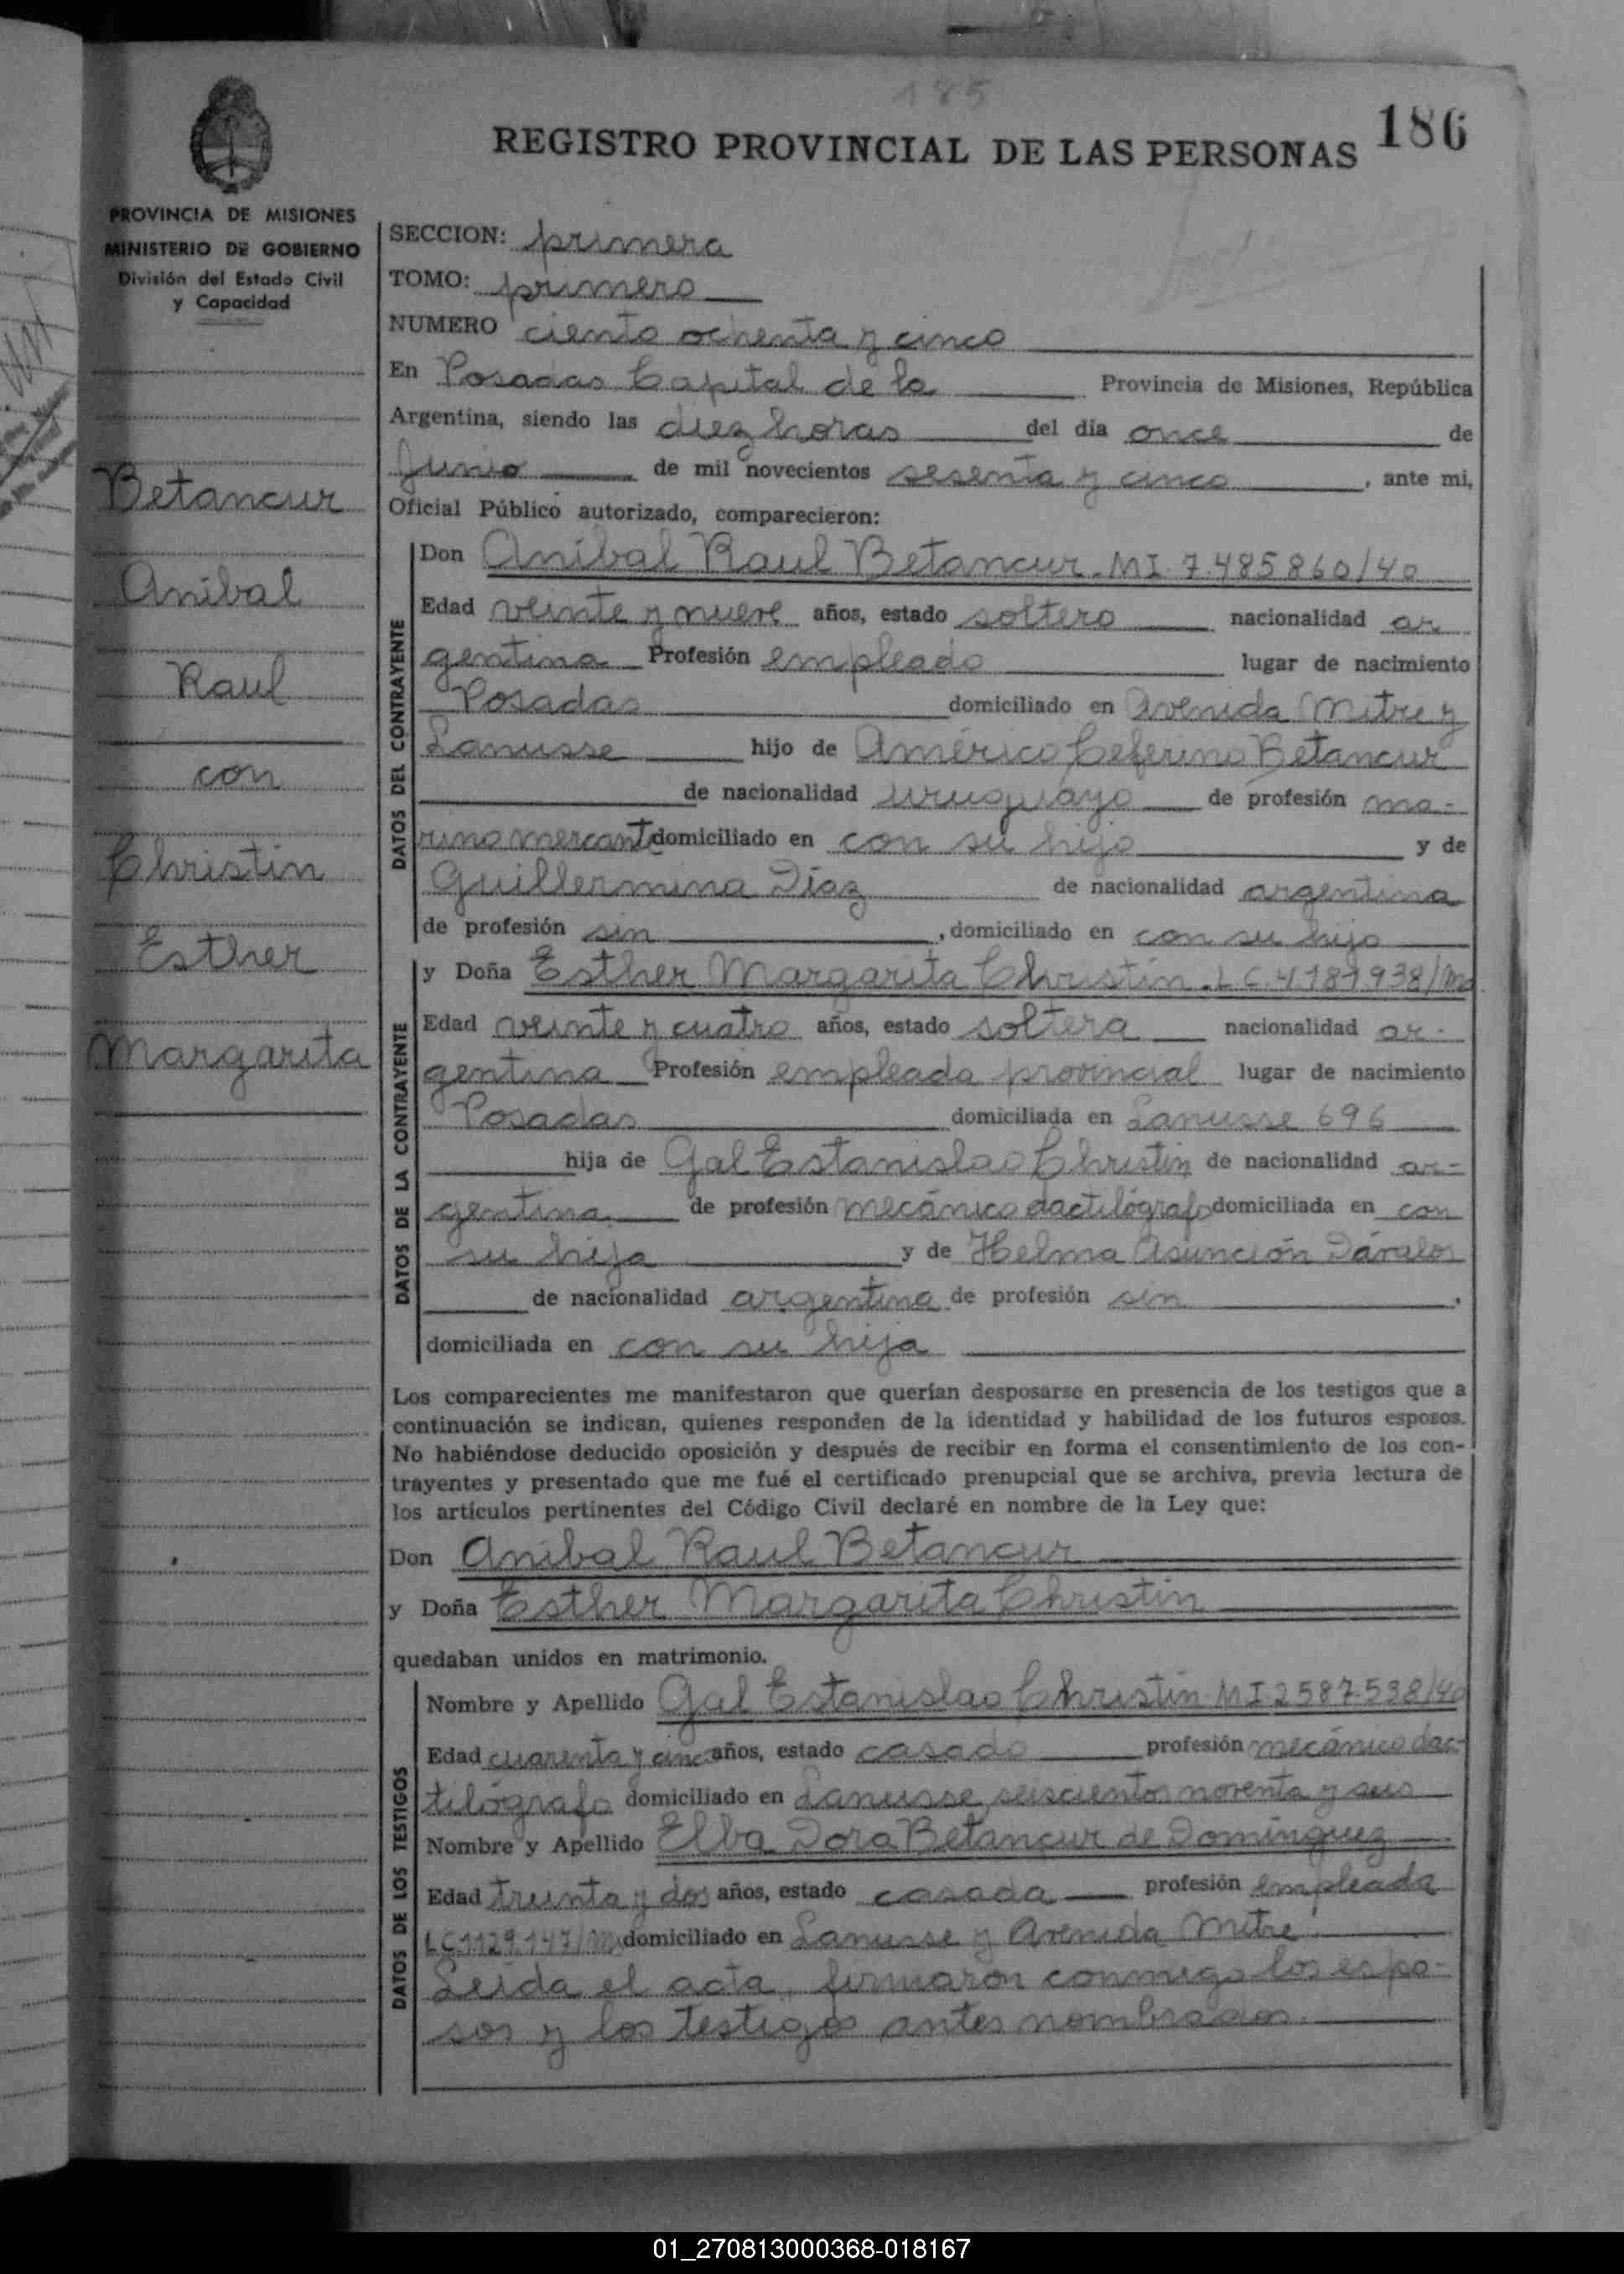 185
186
REGISTRO PROVINCIAL DE LAS PERSONAS
PROVINCIA DE MISIONES
MINISTERIO DE GOBIERNO
División del Estado Civil
y Capacidad
Betancur
Anibal
Raul
con
Christin
Esther
Margarita
SECCION: primera
TOMO: primero
NUMERO ciento ochenta y cinco
En Posadas Capital de la Provincia de Misiones, República
Argentina, siendo las diez horas del día once de
Junio de mil novecientos sesenta y cinco, ante mi,
Oficial Público autorizado, comparecieron:
DATOS DEL CONTRAYENTE
Don Anibal Raul Betancur. MI 7.485.860/40
Edad veinte y nueve años, estado soltero nacionalidad ar
gentina Profesión empleado lugar de nacimiento
Posadas domiciliado en Avenida Mitre y
Lanusse hijo de Américo Ceferino Betancur
de nacionalidad uruguayo de profesión ma-
rino mercante domiciliado en con su hijo y de
Guillermina Díaz de nacionalidad argentina
de profesión sin, domiciliado en con su hijo
DATOS DE LA CONTRAYENTE
y Doña Esther Margarita Christin. LC.4.181.938/Ms
Edad veinte y cuatro años, estado soltera nacionalidad ar-
gentina Profesión empleada provincial lugar de nacimiento
Posadas domiciliada en Lanusse 696
hija de Gal Estanislao Christin de nacionalidad ar-
gentina de profesión mecánico dactilógrafo domiciliada en con
su hija y de Helma Asunción Dávalos
de nacionalidad argentina de profesión sin,
domiciliada en con su hija
Los comparecientes me manifestaron que querían desposarse en presencia de los testigos que a
continuación se indican, quienes responden de la identidad y habilidad de los futuros esposos.
No habiéndose deducido oposición y después de recibir en forma el consentimiento de los con-
trayentes y presentado que me fué el certificado prenupcial que se archiva, previa lectura de
los artículos pertinentes del Código Civil declaré en nombre de la Ley que:
Don Anibal Raul Betancur
y Doña Esther Margarita Christin
quedaban unidos en matrimonio.
DATOS DE LOS TESTIGOS
Nombre y Apellido Gal Estanislao Christin MI 2.587.538/40
Edad cuarenta y cinco años, estado casado profesión mecánico dac-
tilógrafo domiciliado en Lanusse seiscientos noventa y seis
Nombre y Apellido Elba Dora Betancur de Dominguez
Edad treinta y dos años, estado casada profesión empleada
LC.1.129.147/Ms domiciliado en Lanusse y Avenida Mitre.
Leida el acta, firmaron conmigo los espo-
sos y los testigos antes nombrados.
01_270813000368-018167